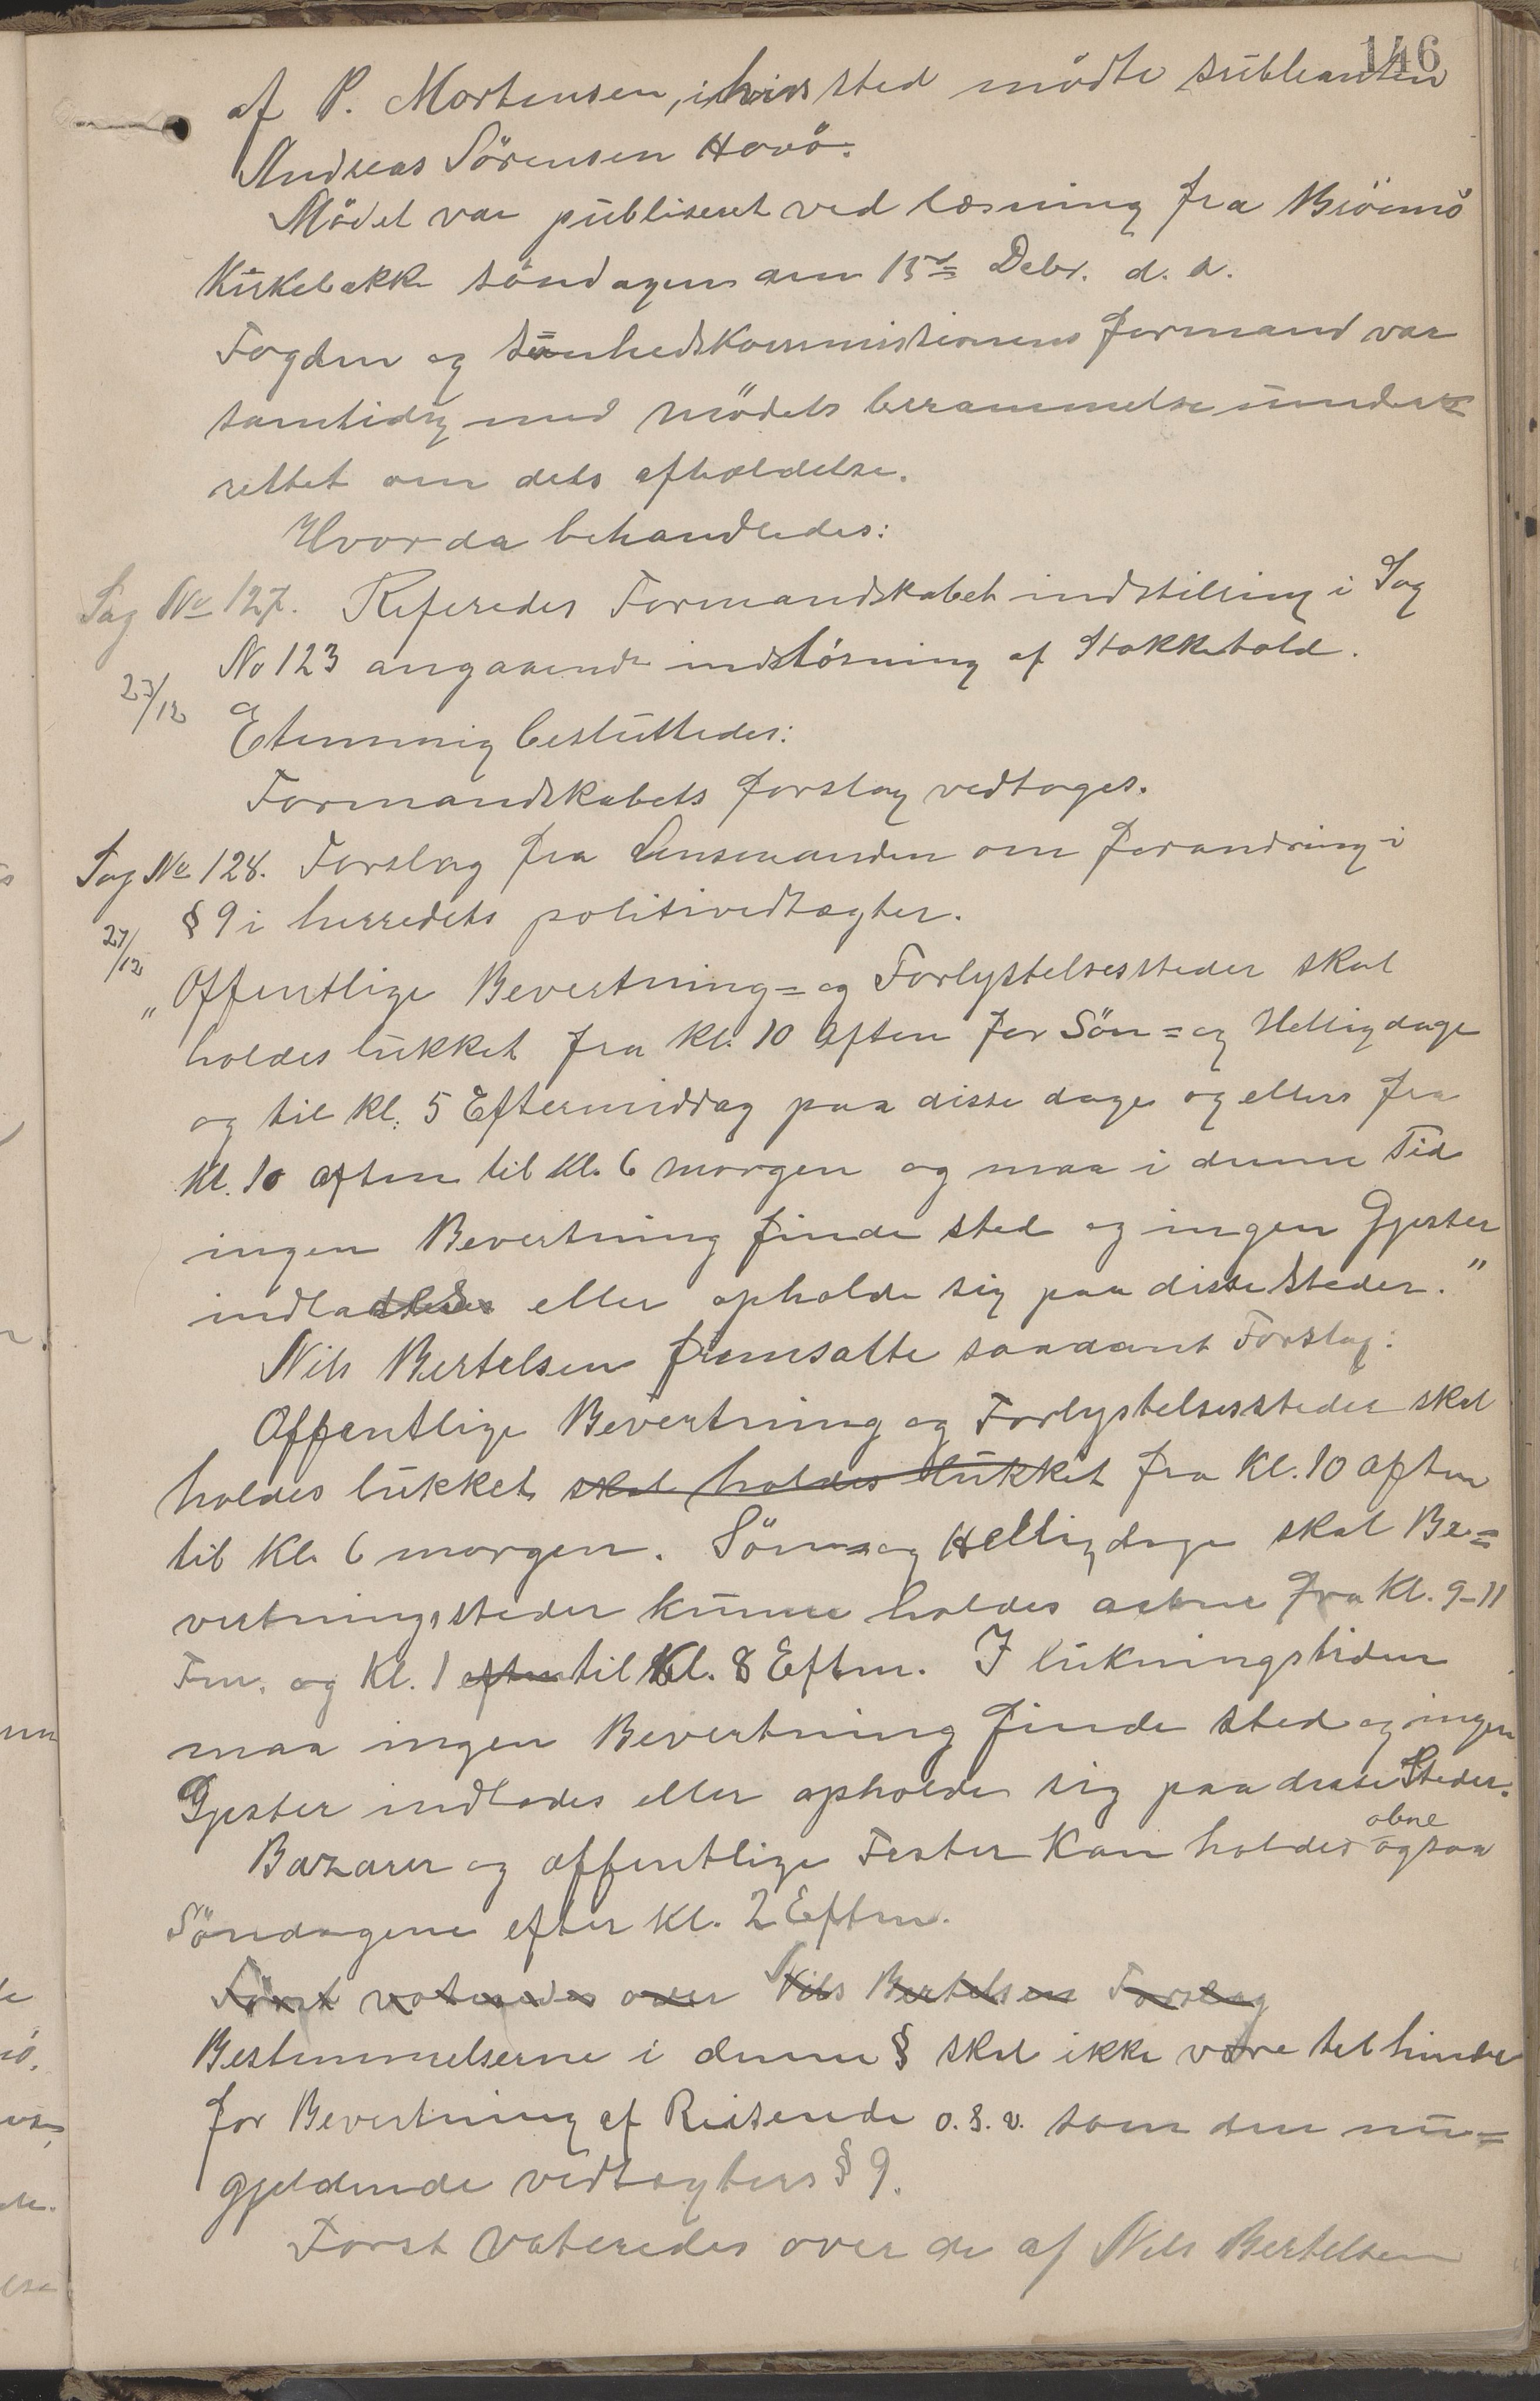 146
af P. Mortensen, i hvis sted mödte subleanten
Andreas Sörensen Hovö.
Mödet var publiseret ved læsning fra Brömö
Kirkebakke söndagen den 15de Debr. d. a.
Fogden og Sunhedskommissionens formand var
samtidig med mödets berammelse under-
rettet om dets afholdelse.
Hvor da behandledes:
Sag No 127. Referedes Formandskabet indstilling i Sag
No 123 angaaende indlösning af Stokkehold.
27/12
Etemmig besluttedes:
Formandskabets forslag vedtoges.
Sag No 128. Forslag fra Lensmanden om forandring i
§ 9 i herredets politivedtægter.
27/12
„Offentlige Bevertning= og Forlystelsessteder skal
holdes lukket fra Kl. 10 Aften før Sön= og Helligdage
og til Kl. 5 Eftermiddag paa disse dage og ellers fra
Kl. 10 aften til Kl. 6 morgen og maa i denne Tid
ingen Bevertning finde sted og ingen Gjester
indlades eller opholde sig paa disse Steder.”
Nils Bertelsen fremsatte saadant Forslag:
Offentlige Bevertning og Forlystelsessteder skal
holdes lukket skal holdes lukket fra Kl. 10 aften
til Kl. 6 morgen. Sön= og Helligdage skal Be=
vertningssteder kunne holdes aabne fra Kl. 9-11
Fm. og Kl. 1 efter til Kl. 8 Eftm. I lukningstiden
maa ingen Bevertning finde sted og ingen
Gjester indlades eller opholde sig paa disse Steder.
abne
Bazarer og offentlige Fester kan holdes ogsaa
Söndagene efter Kl. 2 Eftm.
Först voteredes over Nils Bertelsen Forslag
Bestemmelserne i denne § skal ikke være til hinder
for Bevertning af Reisende o. s. v. som den nu=
gjeldende vedtægters § 9.
Forst voteredes over de af Nils Bertelsen